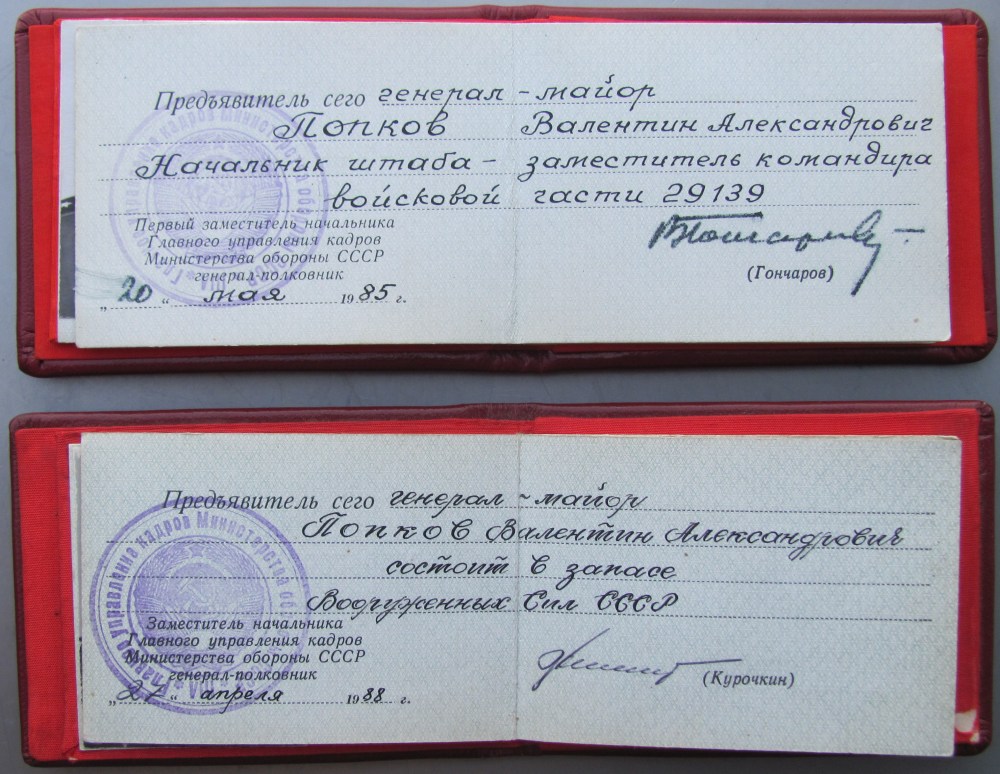 Предъявитель сего генерал-майор
Попков Валентин Александрович
Начальник штаба - заместитель командира
войсковой части 29139
Первый заместитель начальника
Главного управления кадров
Министерства обороны СССР
генерал-полковник
(Гончаров)
„20“ мая 1985 г.
Предъявитель сего генерал-майор
Попков Валентин Александрович
состоит в запасе
Вооруженных Сил СССР
Заместитель начальника
Главного управления кадров
Министерства обороны СССР
генерал-полковник
(Курочкин)
„27“ апреля 1988 г.